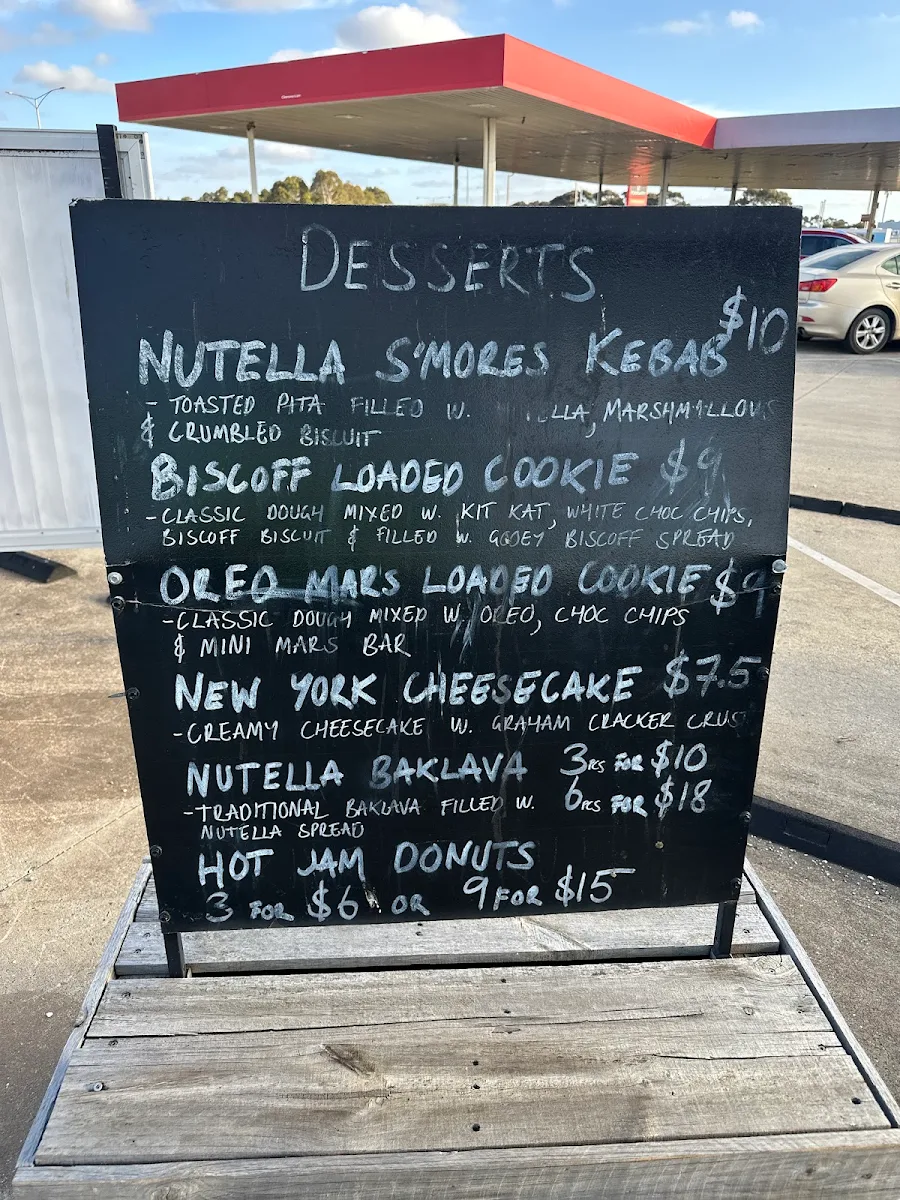 DESSERTS
$10
NUTELLA S'MORES KEBAB
- TOASTED PITA FILLED W. ELLA, MARSHMALLOWS
& CRUMBLED BISCUIT
BISCOFF LOADED COOKIE $9
- CLASSIC DOUGH MIXED W. KIT KAT, WHITE CHOC CHIPS,
BISCOFF BISCUIT & FILLED W. GOOEY BISCOFF SPREAD
OREO MARS LOADED COOKIE $9
- CLASSIC DOUGH MIXED W. OREO, CHOC CHIPS
& MINI MARS BAR
NEW YORK CHEESECAKE $7.5
- CREAMY CHEESECAKE W. GRAHAM CRACKER CRUS
NUTELLA BAKLAVA 3PCS FOR $10
- TRADITIONAL BAKLAVA FILLED W. 6PCS FOR $18
NUTELLA SPREAD
HOT JAM DONUTS
3 FOR $6. OR 9 FOR $15